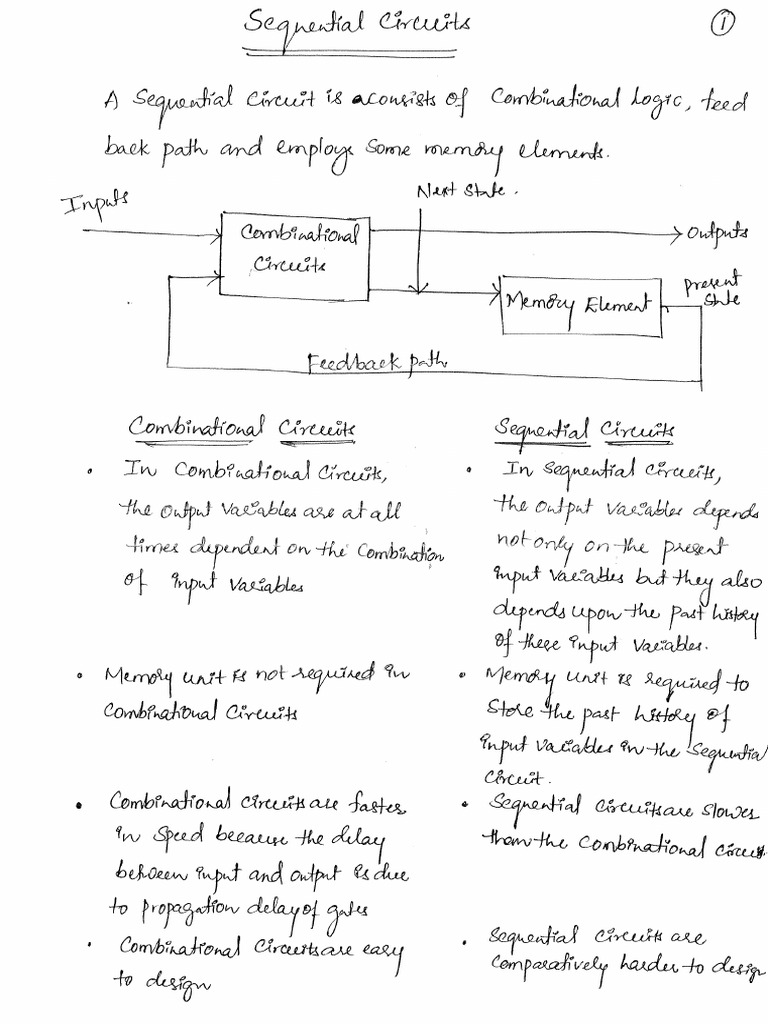 Sequential Circuits
①
A Sequential Circuit is a consists of Combinational Logic, feed
back path and employs some memory elements.
Next State.
Inputs
Combinational
Circuits
Outputs
Memory Element
present
state
Feedback path
Combinational Circuits
• In Combinational Circuits,
the output variables are at all
times dependent on the combination
of input variables
• Memory unit is not required in
Combinational Circuits
• Combinational circuits are faster
in speed because the delay
between input and output is due
to propagation delay of gates
• Combinational circuits are easy
to design
Sequential Circuits
• In sequential circuits,
the output variables depends
not only on the present
input variables but they also
depends upon the past history
of these input variables.
• Memory unit is required to
store the past history of
input variables in the sequential
circuit.
• Sequential circuits are slower
than the combinational circuits.
• Sequential circuits are
comparatively harder to design